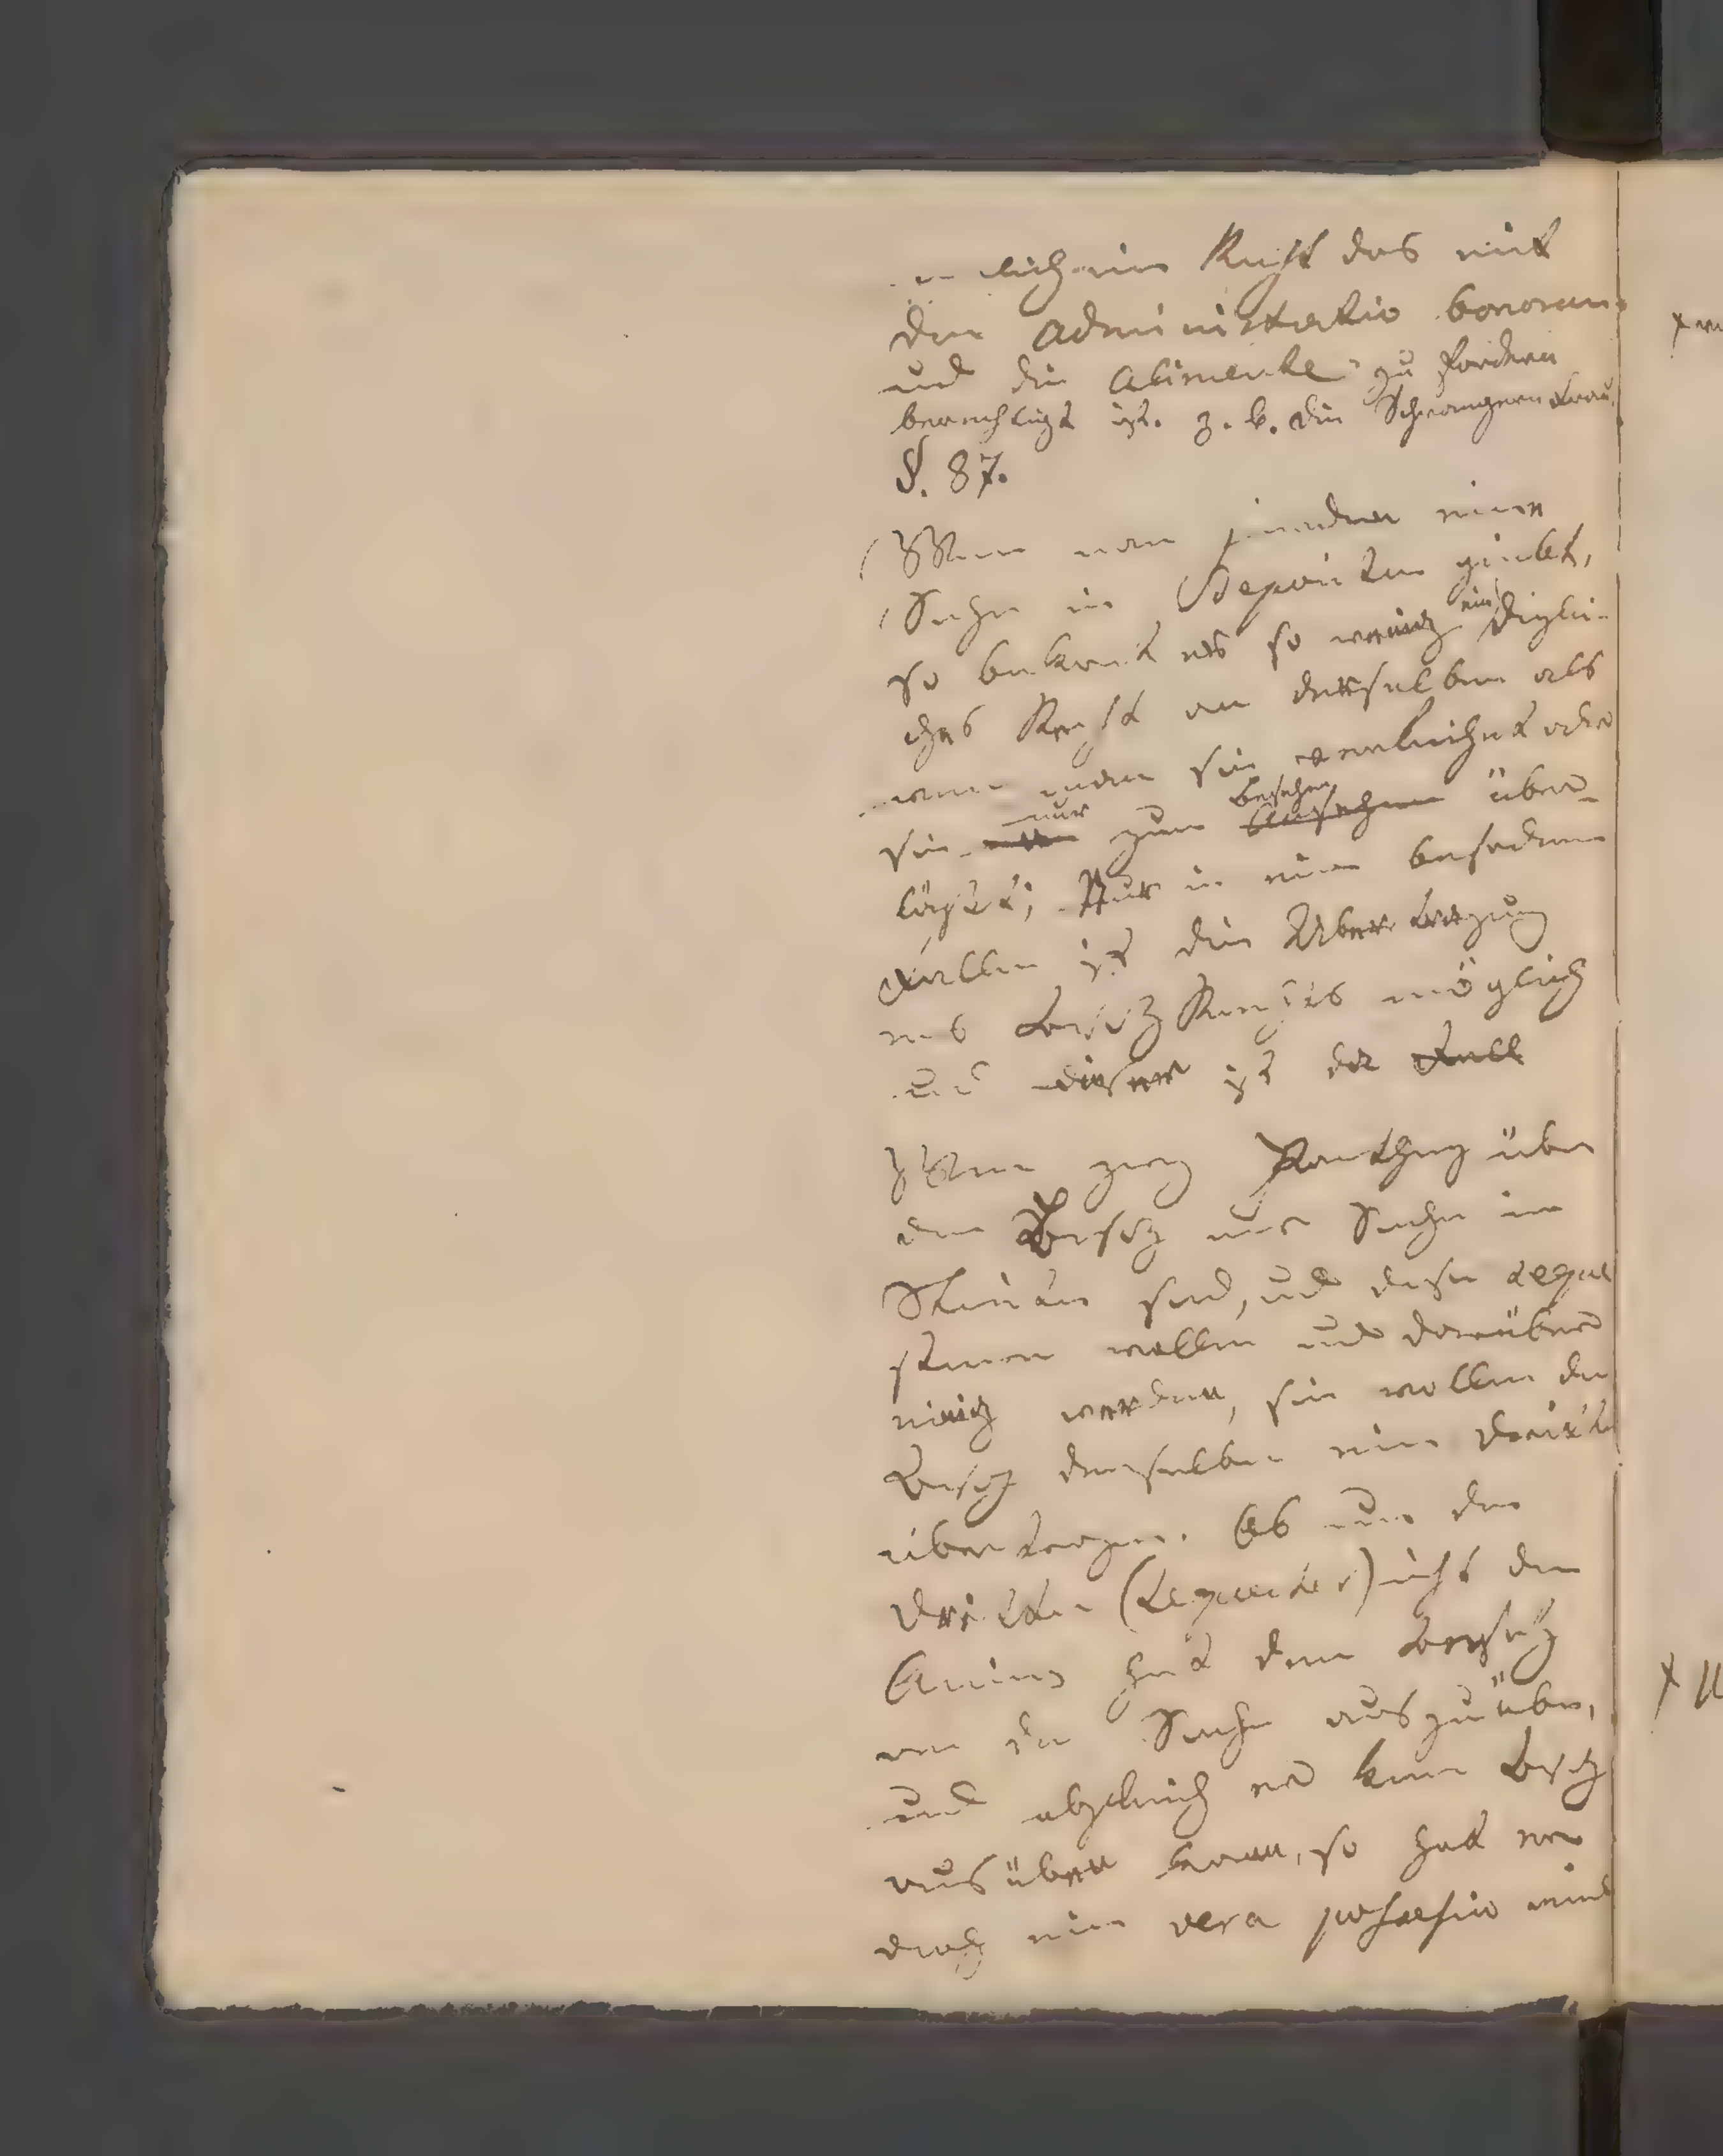 lich ein Recht das mit
der administratio bonorum
und die Alimente zu fordern
berechtigt ist. z. b. die Schwangere Frau.
§. 87.
Wenn man jemanden eine
Sache in Depositum giebt,
so bekomt er so wenig ein digli-
ches Recht an derselben als
wenn man sie verleihet oder
sie nur zum besehen über-
läßt; Nur in einem besondern
Falle ist die Ubertragung
des Besitz Rechts möglich
und dieser ist der Fall
Wenn zwey Partheyen über
den Besitz einer Sache im
Streite sind, und diese seque
striren wollen und darüber
einig werden, sie wollen den
Besitz derselben einem dritten
übertragen. Ob nun der
dritte (Sequester) nicht den
Animus hat den Besitz
an der Sache auszuüben,
und obgleich er kein Besitz
ausüben kann, so hat er
doch eine vera possessio weil